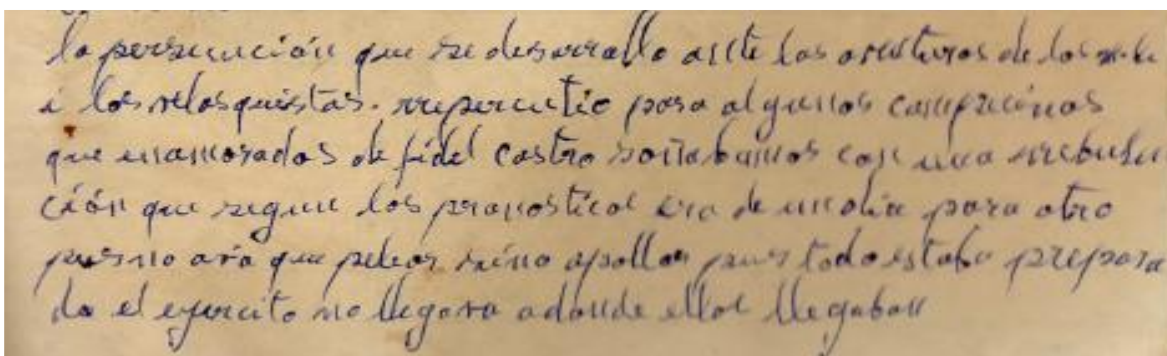 la persecución que se desarrollo ante las oreturas de los
i los velasquistas. rrepercutio para algunos campecinos
que enamorados de fidel castro soñabamos con una rrebulu
ción que segun los pronosticos era de un dia para otro
pues no ara que pelear sino apollar pues todo estaba prepara
do el ejercito no llegara adonde ellos llegaban